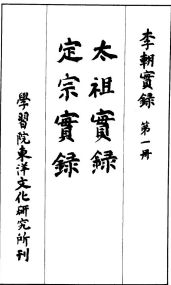 李朝實錄 第一冊
太祖實錄
定宗實錄
學習院東洋文化研究所刊